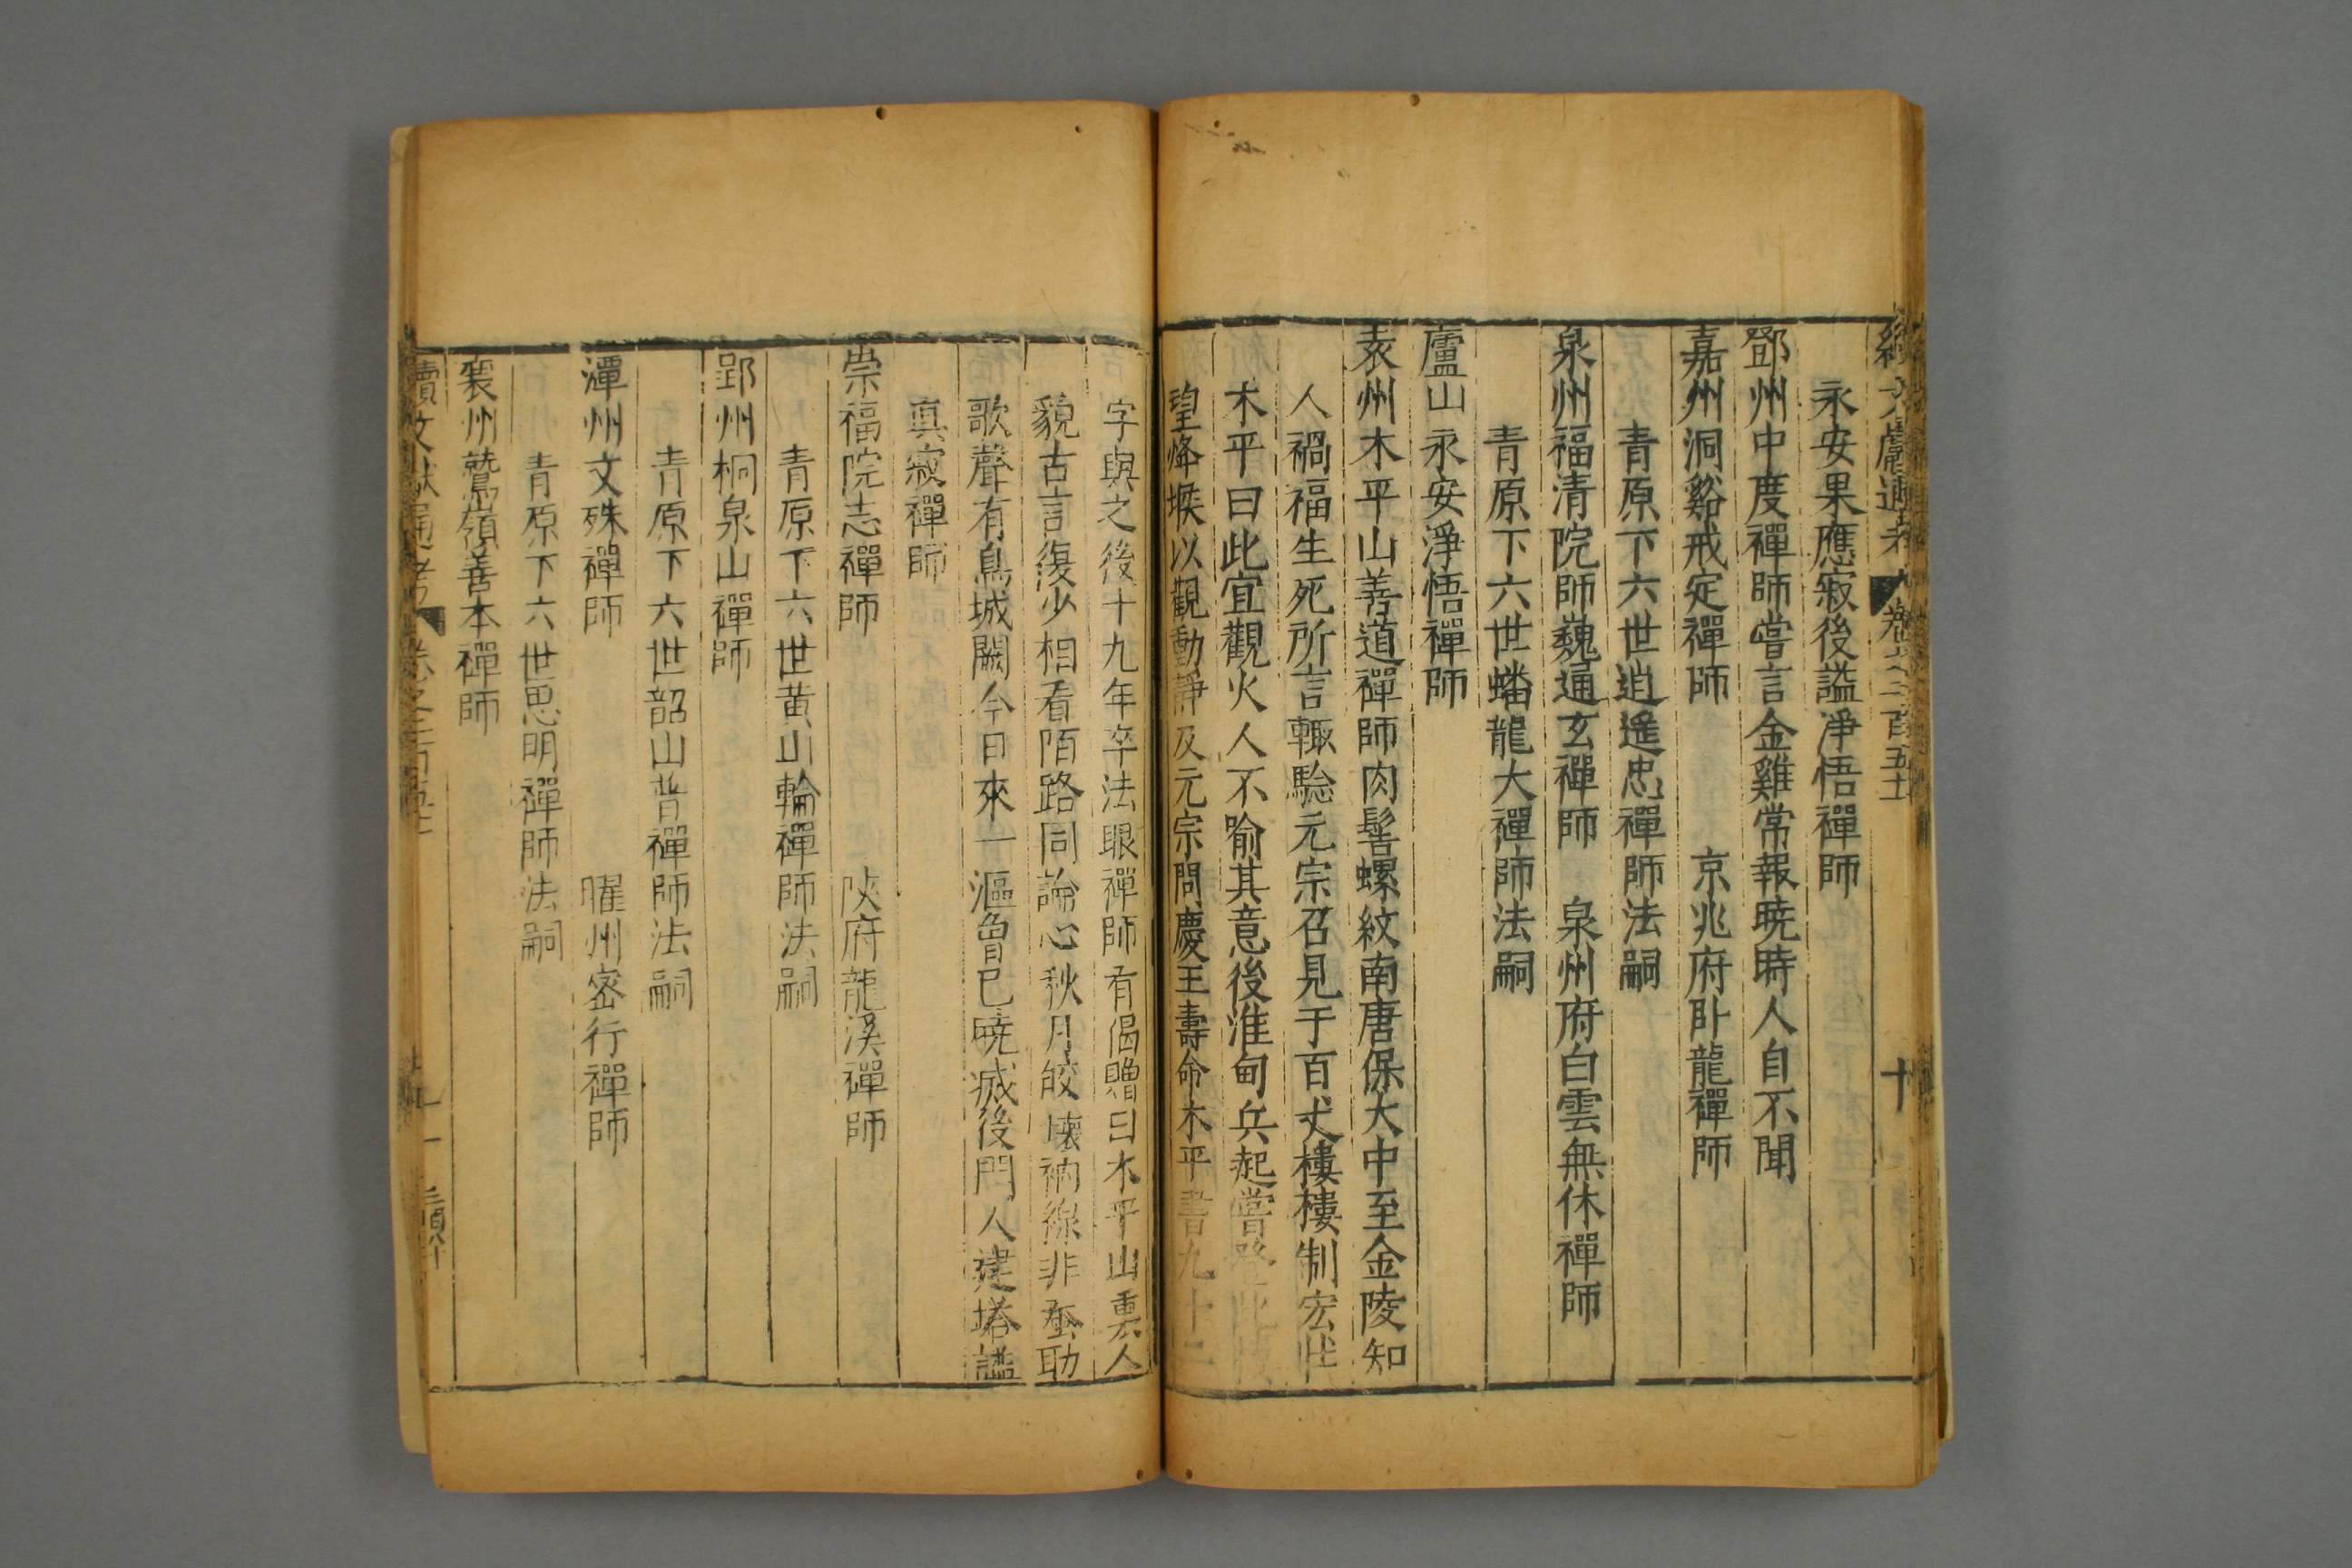 續文獻通考 卷之二百五十 十
永安果應寂後謚淨悟禪師
鄧州中度禪師嘗言金雞常報曉時人自不聞
嘉州洞谿戒定禪師 京兆府卧龍禪師
青原下六世逍遙忠禪師法嗣
泉州福清院師巍通玄禪師 泉州府白雲無休禪師
青原下六世蟠龍大禪師法嗣
廬山永安淨悟禪師
袁州木平山善道禪師肉髻螺紋南唐保大中至金陵知
人禍福生死所言輒驗元宗召見于百尺樓樓制宏壯
木平曰此宜觀火人不喻其意後淮甸兵起嘗登此樓
望烽堠以觀動靜及元宗問慶王壽命木平書九十二
字與之後十九年卒法眼禪師有偈贈曰木平山裏人
貌古言復少相看陌路同論心秋月皎壞衲線非蚕助
歌聲有鳥城闕今日來一漚曾已曉滅後門人建塔謚
真寂禪師
崇福院志禪師 陝府龍溪禪師
青原下六世黄山輪禪師法嗣
郢州桐泉山禪師
青原下六世韶山普禪師法嗣
潭州文殊禪師 耀州密行禪師
青原下六世思明禪師法嗣
襄州鷲嶺善本禪師
續文獻通考 卷之二百五十 十一